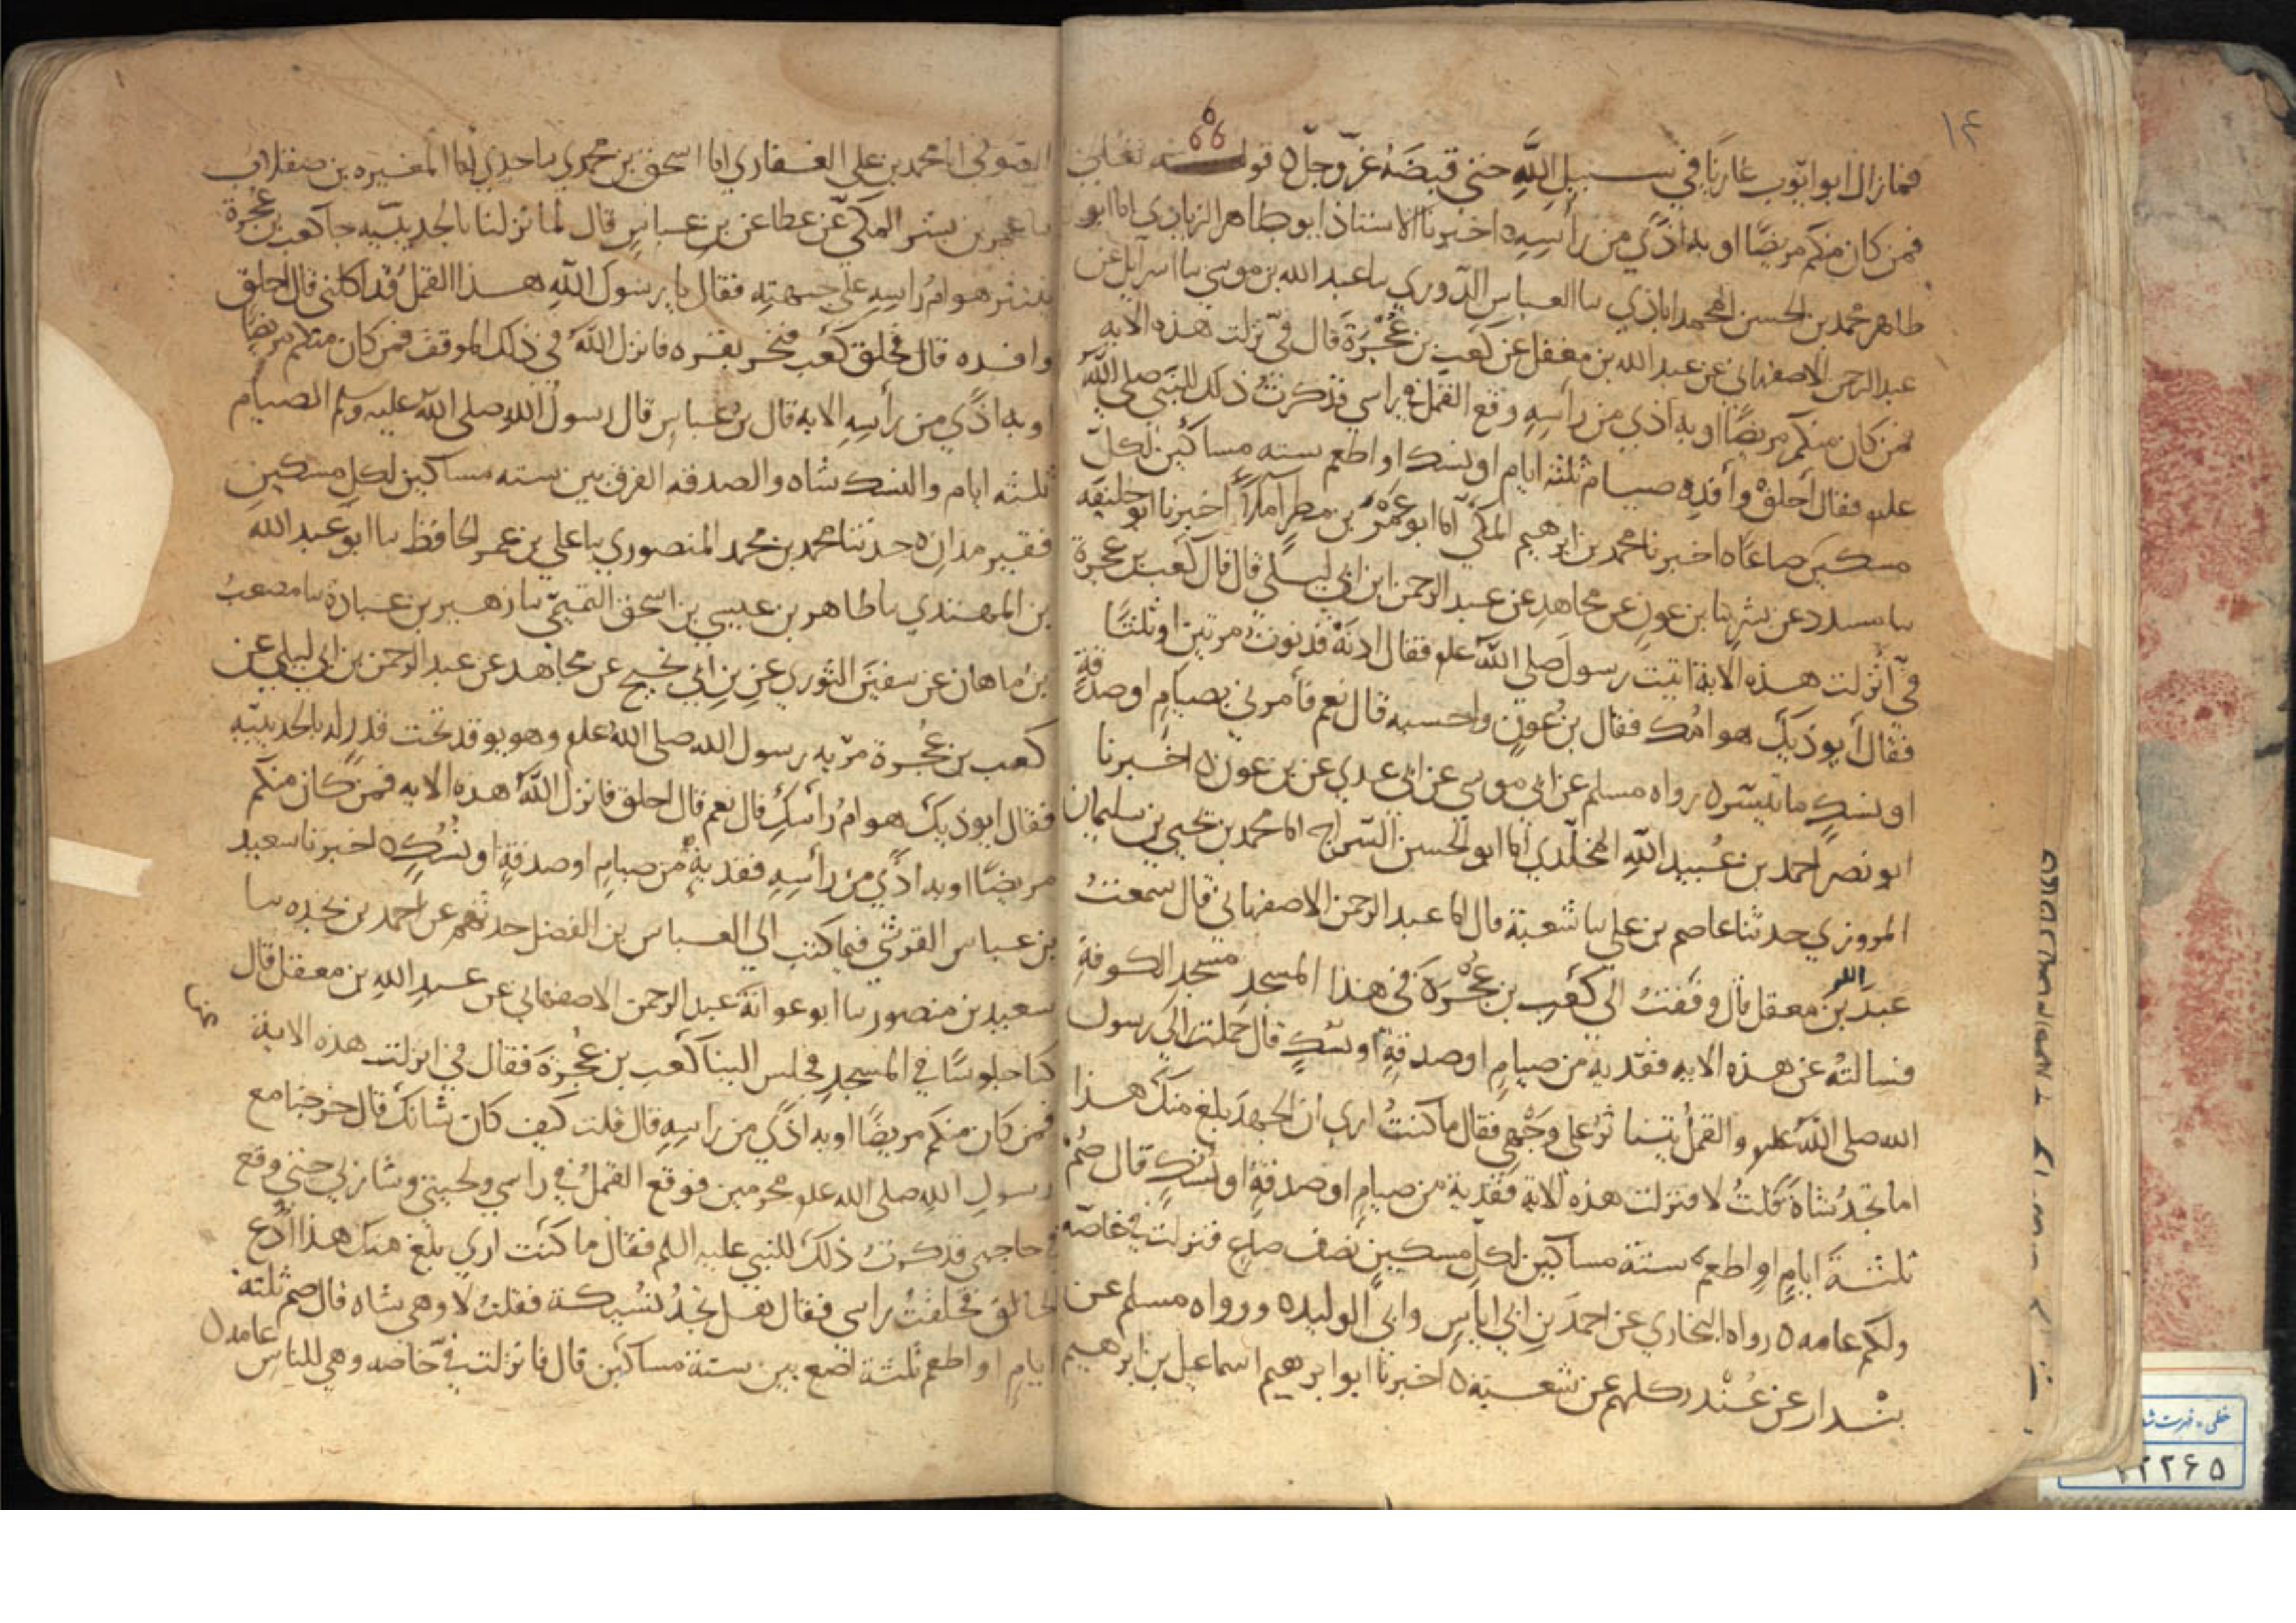 ١٤
فما زال ابو ايّوب غازيًا في سبيل اللهِ حتى قبضَهُ عزّ وجلّ ٥ قوله تعالى
فمن كان منكم مريضًا او به اذًي من رأسِهِ ٥ اخبرنا الاستاذ ابو طاهر الزيادي انا ابو
طاهر محمد بن الحسن المحمداباذي نا العباس الدّوري نا عبد الله بن موسي نا اسرآيل عن
عبد الرحمن الاصفهاني عن عبد الله بن مغفل عن كَعب بن عُجْرَةَ قال فيّ نزلت هذه الايه
فمن كان منكم مريضًا او به اذي من رأسِهِ وقع القمل في راسي فذكرتُ ذلك للنّبي صلى اللهُ
عليه فقال أحلقْ وأفدِه صيام ثلثه ايام او نسك او اطعم سته مساكين لكلّ
مسكين صاعًا ٥ اخبرنا محمد بن ابرهيم المكّي انا ابو عَمْرو بن مطر املآءً اخبرنا ابو خليفه
نا مسدد عن بشر نا بن عونٍ عن مجاهدٍ عن عبد الرحمن ابن ابي ليلي قال قال كَعب بن عجرة
فيّ أنزلت هذه الاية اتيت رسولَ صلى اللهُ عله فقال ادنَهْ فدنوتُ مرتين او ثلثًا
فقال أيوذيكَ هوامُك فقال بن عونٍ واحسبه قال نعم فأمرني بصيامٍ او صدقةٍ
او نسكٍ ما تيسّر ٥ رواه مسلم عن ابي موسي عن ابي عدي عن بن عون ٥ اخبرنا
ابو نصر احمد بن عُبيد اللهِ المخلّدي انا ابو الحسن السّراج انا محمد بن يحيي بن سليمان
المروزي حدثنا عاصم بن علي نا شعبة قال انا عبد الرحمن الاصفهاني قال سمعتُ
عبدَ الله بنَ معقل قال وقفتُ الي كَعب بن عُجْرَةَ في هذا المسجدِ مسجد الكوفةِ
فسالتهُ عن هذه الايه ففدية من صيامٍ او صدقةٍ او نسكٍ قال حُملت الَي رسول
الله صلى اللهُ عله والقملُ يتناثرُ علي وَجْهي فقال ما كنتُ اري ان الجهدَ بلغ منك هذا
اما تجدُ شاةً قلتُ لا فنزلت هذه الاية ففدية من صيامٍ او صدقةٍ او نُسُكٍ قال صُمْ
ثلثةَ ايامٍ او اطعم ستةَ مساكين لكلّ مسكينٍ نصف صاعٍ فنزلت فيّ خاصّه
ولكم عامه ٥ رواه البخاري عن احمدَ بن ابي اياسٍ وابي الوليد ٥ ورواه مسلم عن
بندار عن غُنْدر كلهم عن شعبة ٥ اخبرنا ابو ابرهيم اسماعيل بن ابرهيم
الصوفي انا محمد بن علي الغفاري انا اسحق بن محمدي نا جدي انا المغيره بن صقلاب
نا عمر بن بشر المكّي عن عطا عن بن عباسٍ قال لما نزلنا بالحديبيّه جا كعب بن عُجرة
ينثر هوامُ راسِهِ علي جبهتِهِ فقال يا رسولَ اللهِ هذا القملُ قد اكلني قال احلق
وافده قال فحلق كَعب فنحر بقره فانزل اللهُ في ذلك الموقف فمن كان منكم مريضًا
او به اذًي من رأسِهِ الايه قال بن عباسٍ قال رسولُ الله صلى الله عليه وسلم الصيام
ثلثه ايام والنسك شاه والصدقه الفرق بين سته مساكين لكل مسكينٍ
فقير مدان ٥ حدثنا محمد بن محمد المنصوري نا علي بن عمر الحافظ نا ابو عبد الله
بن المهتدي نا طاهر بن عيسي بن اسحق التميمّي نا زهير بن عبادة نا مصعبُ
بن ماهان عن سفيَن الثوري عن بن ابي نجيح عن مجاهد عن عبد الرحمن بن ابي ليلي عن
كعب بن عُجْرة مرّ به رسول الله صلى اللهُ عله وهو يوقد تحت قدرٍ له بالحديبيّه
فقال ايوذيكَ هوامُ رأسكَ قال نعم قال احلق فانزل اللهُ هذه الايه فمن كان منكم
مريضًا او به اذًي من رأسِهِ ففديةٌ من صيامٍ او صدقةٍ او نُسُكٍ ٥ اخبرنا سعيد
بن عباس القرشي فيما كتب الي العباس بن الفضل حدثهم عن احمد بن نجده نا
سعيد بن منصور نا ابو عوانة عبد الرحمن الاصفهاني عن عبدِ اللهِ بن معقل قال
كنا جلوسًا في المسجدِ فجلس الينا كَعب بن عُجْرَةَ فقال فيّ انزلت هذه الاية
فمن كان منكم مريضًا او به اذًي من راسِهِ قال قلت كيف كان شانك قال خرجنا مع
رسول اللهِ صلى الله عله محرمين فوقع القملُ في راسي ولحيتي وشاربي حتي وقع
في حاجبي فذكرتُ ذلك للنبي عليه السلم فقال ما كنت اري بلغ منك هذا ادْع
الحالق فحلقتُ راسي فقال هل تجدُ نسيكة فقلتُ لا وهي شاه قال صم ثلثة
ايامٍ او اطعم ثلثة اصُع بين ستة مساكين قال فانزلت فيّ خاصه وهي للناس عامه ٥
خطى - فهرست
٢٢٦٥